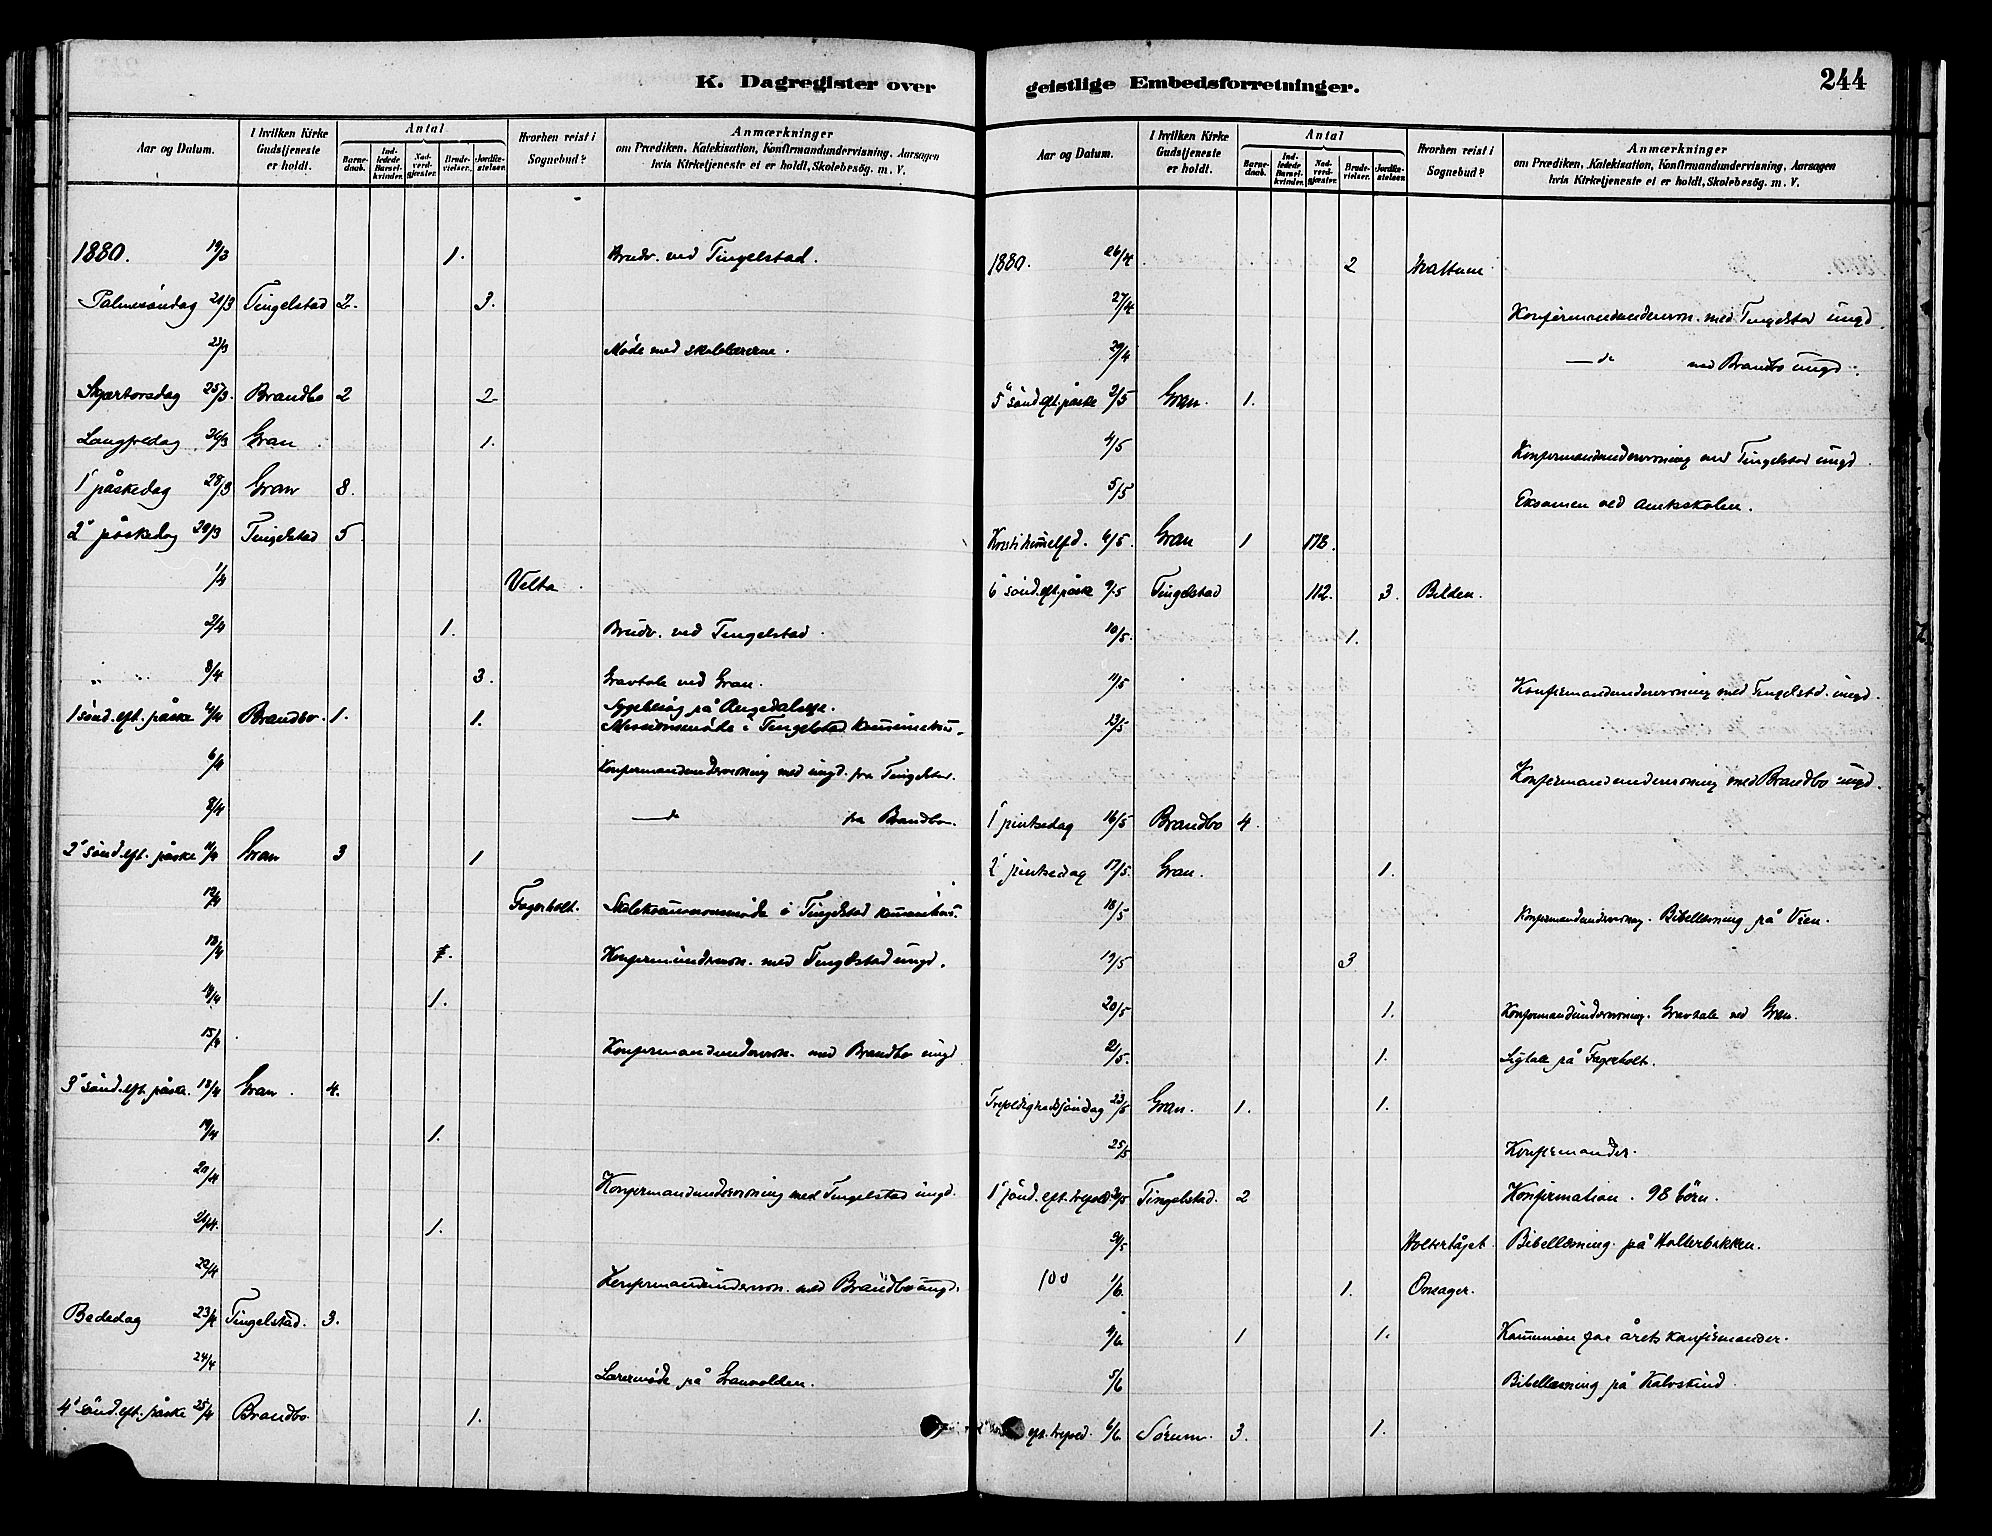 K. Dagregister over
Aar og Datum.
I hvilken Kirke Gudstjeneste er holdt.
Antal
Barnedaab.
Indledede Barselkvinder.
Nadverdgjæster.
Brudevielser.
Jordfæstelser.
Hvorhen reist i Sognebud?
Anmærkninger
om Prædiken, Katekisation, Konfirmandundervisning, Aarsagen
hvis Kirketjeneste ei er holdt, Skolebesøg. m. V.
1880. 19/3 1. Brudv. ved Tingelstad.
Palmesöndag 21/3 Tingelstad 2. 3.
23/3 Møde med skolelærerne.
Skjærtorsdag 25/3 Brandbo 2 2
Langfredag 26/3 Gran 1.
1' påskedag 28/3 Gran 8.
2' påskedag 29/3 Tingelstad 5
1/4 Velta
2/4 1. Brudv. ved Tingelstad.
3/4 3. Gravtale ved Gran.
Sygebesög på
1 sönd. eft. påske 4/4 Brandbo. 1. 1. Missionsmøde i Tingelstad
6/4 Konfirmandundervisning med ungd. fra Tingelstad.
8/4 —do fra Brandbo.
2' sönd. eft. påske 11/4 Gran 3 1
12/4 Fagerholt. Skolekommissionsmøde i Tingelstad
13/4 Konfirmundervisn. med Tingelstad ungd.
14/4 1.
15/4 Konfirmandundervisn. med Brandbo ungd
3' sönd. eft. påske. 18/4 Gran. 4.
19/4 1.
20/4 Konfirmandundervisning med Tingelstad ungd.
1.
22/4 Konfirmandundervisn. med Brandbo ungd.
Bededag 23/4 Tingelstad. 3.
24/4 Lærermøde på Granvolden.
4' sönd. eft. påske 25/4 Brandbo. 1.
geistlige Embedsforretninger.
244
Aar og Datum.
I hvilken Kirke Gudstjeneste er holdt.
Antal
Barnedaab.
Indledede Barselkvinder.
Nadverdgjæster.
Brudevielser.
Jordfæstelser.
Hvorhen reist i Sognebud?
Anmærkninger
om Prædiken, Katekisation, Konfirmandundervisning, Aarsagen
hvis Kirketjeneste ei er holdt, Skolebesøg. m. V.
1880. 26/4 2
27/4 Konfirmandundervisn. med Tingelstad ungd.
29/4 —do med Brandbo ungd.
5' sönd. eft. påske 2/5 Gran. 1.
4/5 Konfirmandundervisning med Tingelstad ungd.
5/5 Eksamen ved Amtsskolen.
Kristi himmelfd. 6/5. Gran 1 178.
6' sönd. eft. påske 9/5 Tingelstad 112. 3. Bilden.
10/5. 1.
11/5 Konfirmandundervisning med Tingelstd. ungd.
13/5 Konfirmandundervisning med Brandbo ungd.
1' pintsedag 16/5 Brandbo 4.
2' pintsedag 17/5. Gran. 1.
18/5 Konfirmandundervisning. Bibellæsning på Vien.
19/5 3
20/5 1. Konfirmandundervisning. Gravtale ved Gran.
21/5. 1. Ligtale på Fagerholt.
Trefoldighedssöndag 23/5 Gran. 1. 1.
25/5 Konfirmander.
1' sönd. eft. trefold. 30/5 Tingelstad. 2 Konfirmation. 98 börn.
31/5 Bibellæsning på Holterbakken.
100 1/6. 1. Onsager.
4/6 1 1. Kommunion for årets konfirmander.
5/6 Bibellæsning på Kalvskind.
eft. trefold. 6/6 Sörum. 3. 1.